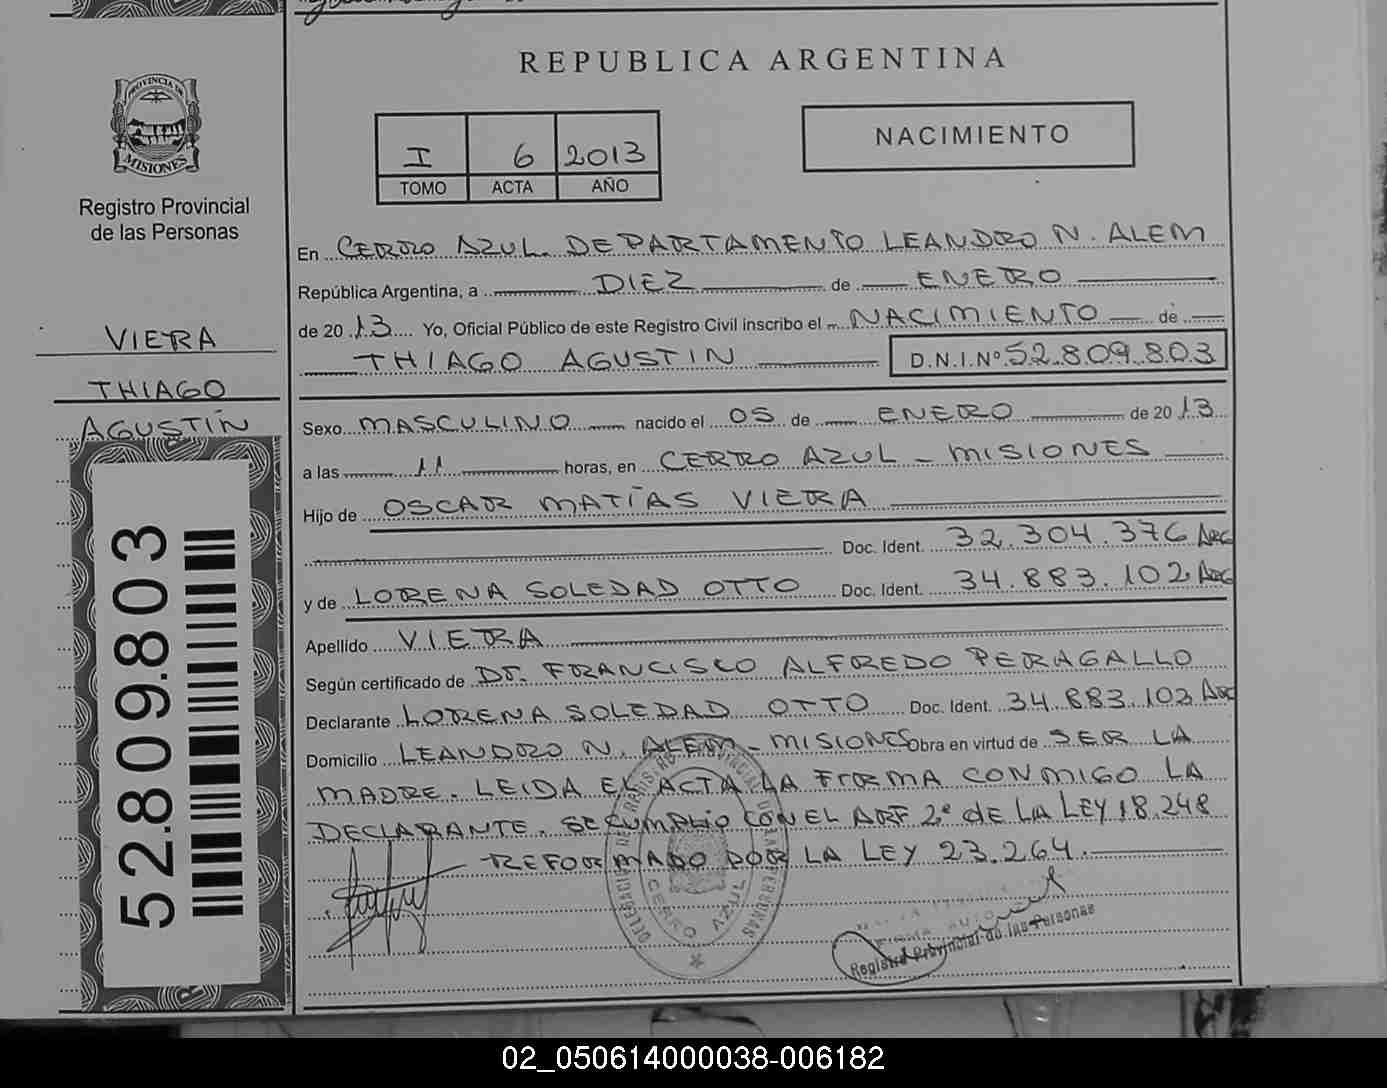 REPUBLICA ARGENTINA
PROVINCIA DE
MISIONES
Registro Provincial
de las Personas
I 6 2013
TOMO ACTA AÑO
NACIMIENTO
En CERRO AZUL DEPARTAMENTO LEANDRO N. ALEM
República Argentina, a DIEZ de ENERO
de 2013 Yo, Oficial Público de este Registro Civil inscribo el NACIMIENTO de
THIAGO AGUSTIN D.N.I.Nº 52.809.803
VIERA
THIAGO
AGUSTÍN
52.809.803
Sexo MASCULINO nacido el 05 de ENERO de 2013
a las 11 horas, en CERRO AZUL - MISIONES
Hijo de OSCAR MATÍAS VIERA
Doc. Ident. 32.304.376 ARG
y de LORENA SOLEDAD OTTO Doc. Ident. 34.883.102 ARG
Apellido VIERA
Según certificado de DR. FRANCISCO ALFREDO PERAGALLO
Declarante LORENA SOLEDAD OTTO Doc. Ident. 34.883.102 ARG
Domicilio LEANDRO N. ALEM - MISIONES Obra en virtud de SER LA
MADRE. LEIDA EL ACTA LA FIRMA CONMIGO LA
DECLARANTE. SE CUMPLIÓ CON EL ART 2º de LA LEY 18.248
REFORMADO POR LA LEY 23.264.
DELEGACION DEL REGISTRO PROVINCIAL DE LAS PERSONAS
CERRO AZUL
Registro Provincial de las Personas
02_050614000038-006182